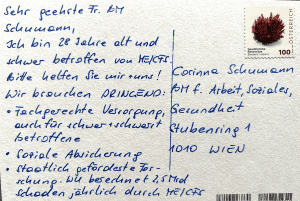 Sehr geehrte Fr. BM
Schumann,
Ich bin 28 Jahre alt und
schwer betroffen von ME/CFS.
Bitte helfen Sie mir/uns!
Wir brauchen DRINGEND:
• Fachgerechte Versorgung,
auch für schwer + schwerst
betroffene
• Soziale Absicherung
• Staatlich geförderte For-
schung. WU berechnet 2,5 Mrd
Schaden jährlich durch ME/CFS
ÖSTERREICH
100
Corinna Schumann
BM f. Arbeit, Soziales,
Gesundheit
Stubenring 1
1010 WIEN